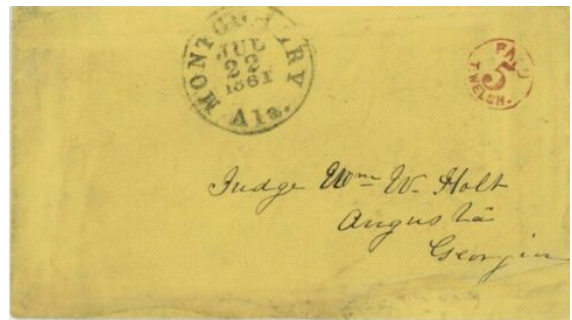 MONTGOMERY
JUL
22
1861
Ala.
PAID
5
T. WELSH.
Judge Wm W. Holt
Augusta
Georgia